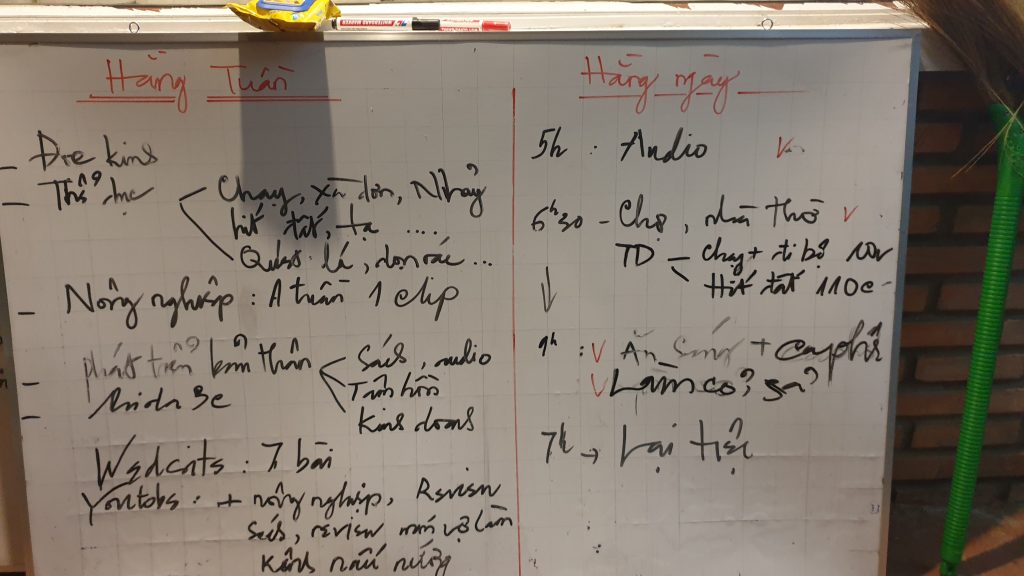 Hằng Tuần
- Đọc kinh
- Thể dục
Chạy, xà đơn, Nhảy
hít đất, tạ ....
Quét lá, dọn rác ...
- Nông nghiệp : 1 tuần 1 clip
- phát triển bản thân
Sách, audio
Tâm hồn
Kinh doanh
: 7 bài
+ nông nghiệp, Review
sách, review
Kênh nấu nướng
Hằng ngày
5h : Audio v
6h30 - Chợ, nhà thờ v
TD - chạy + đi bộ 10v
Hít đất 110c
9h : v Ăn sáng + cà phê
v Làm cơ sở
7h → Lại tiệc